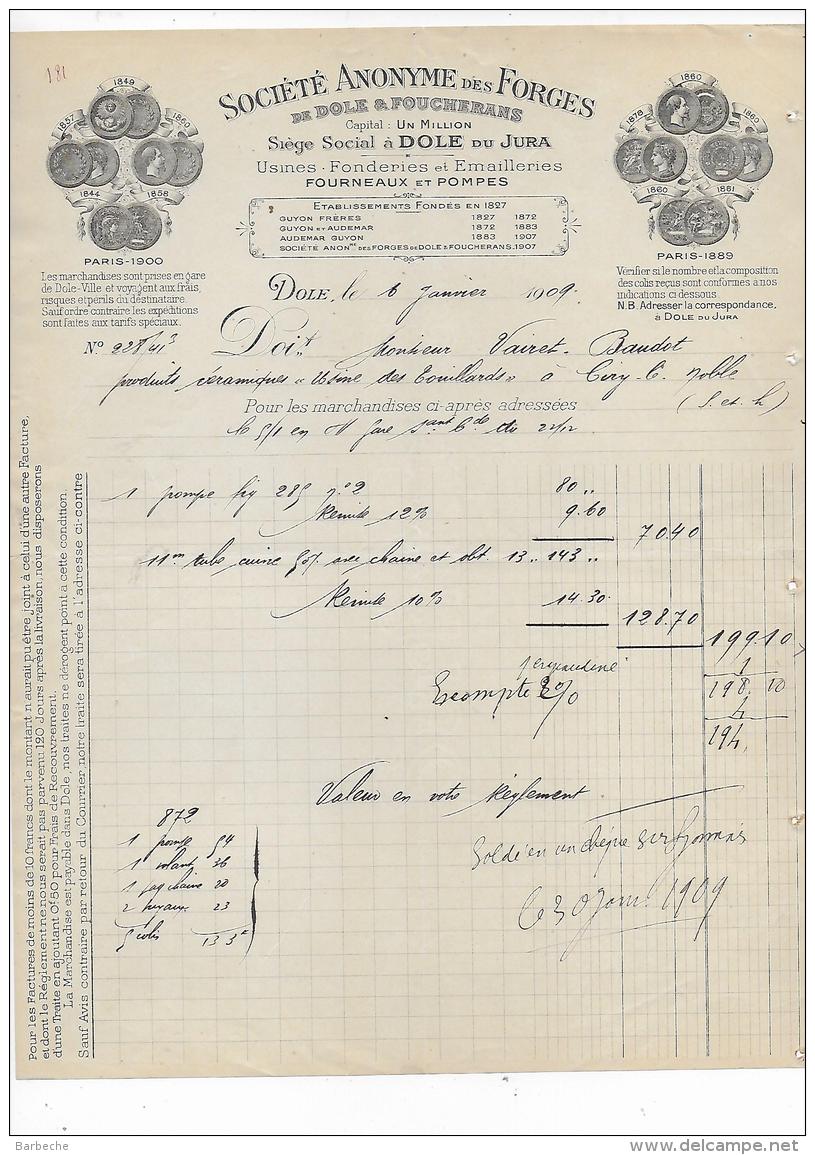 181
1849
1857
1860
1844
1858
PARIS-1900
SOCIÉTÉ ANONYME DES FORGES
DE DOLE & FOUCHERANS
Capital : UN MILLION
Siège Social à DOLE DU JURA
Usines - Fonderies et Emailleries
FOURNEAUX ET POMPES
ETABLISSEMENTS FONDÉS EN 1827
GUYON FRÈRES 1827 1872
GUYON ET AUDEMAR 1872 1883
AUDEMAR GUYON 1883 1907
SOCIÉTÉ ANONME DES FORGES DE DOLE & FOUCHERANS. 1907
1860
1878
1860
1860
1861
PARIS-1889
Les marchandises sont prises en gare
de Dole-Ville et voyagent aux frais,
risques et périls du destinataire.
Sauf ordre contraire les expéditions
sont faites aux tarifs spéciaux.
Vérifier si le nombre et la composition
des colis reçus sont conformes a nos
indications ci dessous.
N.B. Adresser la correspondance,
à DOLE DU JURA
DOLE, le 6 Janvier 1909.
N° 928/413
Doit Monsieur Vairet-Baudot
produits céramiques « Usine des Touillards » à Ciry-le-Noble
(S. et L)
Pour les marchandises ci-après adressées
le 5/1 en gare sant Cde du 22/12
1 pompe fig 285 n° 2 80 "
Remise 12% 9.60
70.40
11m tube cuivre avec chaine et obt. 13 " 143 "
Remise 10% 14.30
128.70
199.10
1
Escompte 2%
198.10
4
194,
Valeur en votre Règlement
Soldé en un chèque sur
le 30 Janv. 1909
872
1 pompe 54
1 volant 36
1 paq chaine 20
2 tuyaux 23
5 colis 133k
Pour les Factures de moins de 10 francs dont le montant n'aurait pu être joint à celui d'une autre Facture,
et dont le Règlement ne nous serait pas parvenu 120 Jours après la livraison, nous disposerons
d'une Traite en ajoutant 0f.50 pour Frais de Recouvrement.
La Marchandise est payable dans Dole, nos traites ne dérogent point a cette condition.
Sauf Avis contraire par retour du Courrier, notre traite sera tirée à l'adresse ci-contre
Barbeche
delcampe.net